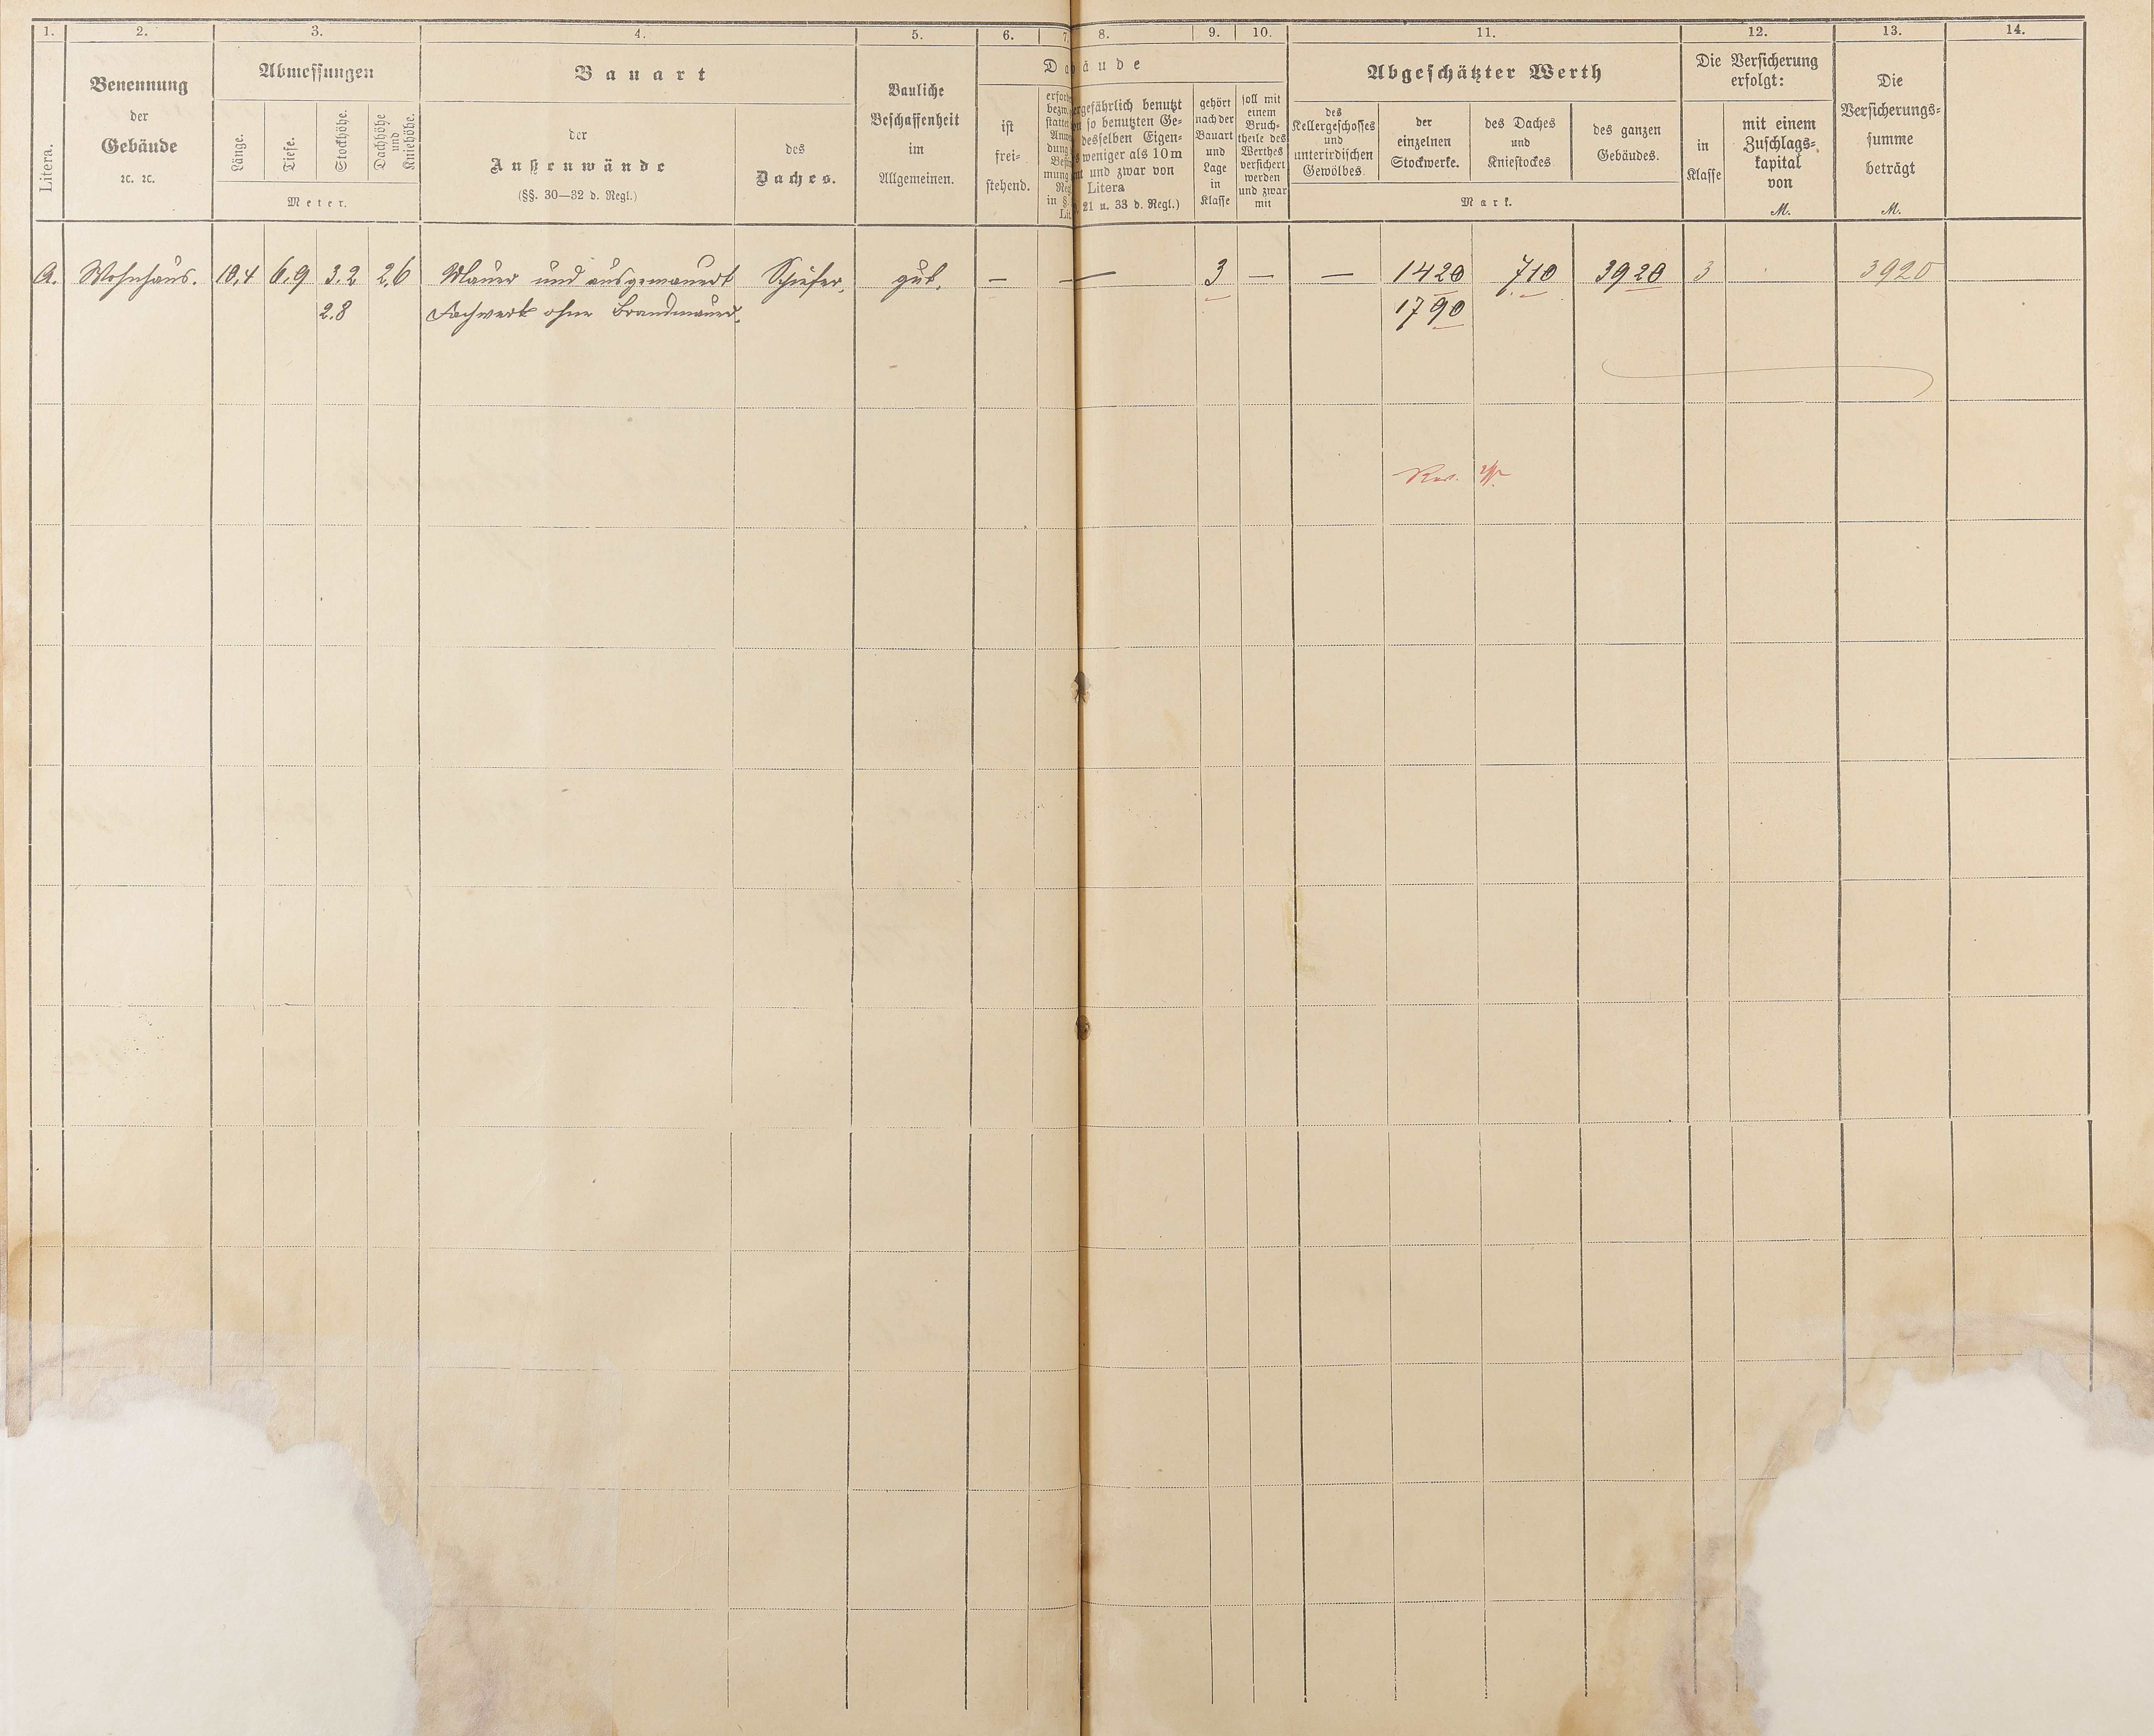 1. 2. 3. 4. 5. 6. 7. 8. 9. 10. 11. 12. 13. 14.
Litera.
Benennung
der
Gebäude
ꝛc. ꝛc.
Abmessungen
Länge.
Tiefe.
Stockhöhe.
Dachhöhe
und
Kniehöhe.
Meter.
Bauart
der
Außenwände
(§§. 30—32 d. Regl.)
des
Daches.
Bauliche
Beschaffenheit
im
Allgemeinen.
ist
frei-
stehend.
äude
benutzt
so benutzten Ge-
desselben Eigen-
weniger als 10 m
und zwar von
Litera
21 u. 33 d. Regl.)
gehört
nach der
Bauart
und
Lage
in
Klasse
soll mit
einem
Bruch-
theile des
Werthes
versichert
werden
und zwar
mit
Abgeschätzter Werth
des
Kellergeschosses
und
unterirdischen
Gewölbes.
der
einzelnen
Stockwerke.
des Daches
und
Kniestockes
des ganzen
Gebäudes.
Mark.
Die Versicherung
erfolgt:
in
Klasse
mit einem
Zuschlags-
kapital
von
M.
Die
Versicherungs-
summe
beträgt
M.
A. Wohnhaus. 10,4 6,9 3.2 2,6 Mauer und ausgemauert Schiefer. gut. — — 3 — — 1420 710 3920 3 3920
2.8 Fachwerk ohne Brandmauer. 1790
Rev.